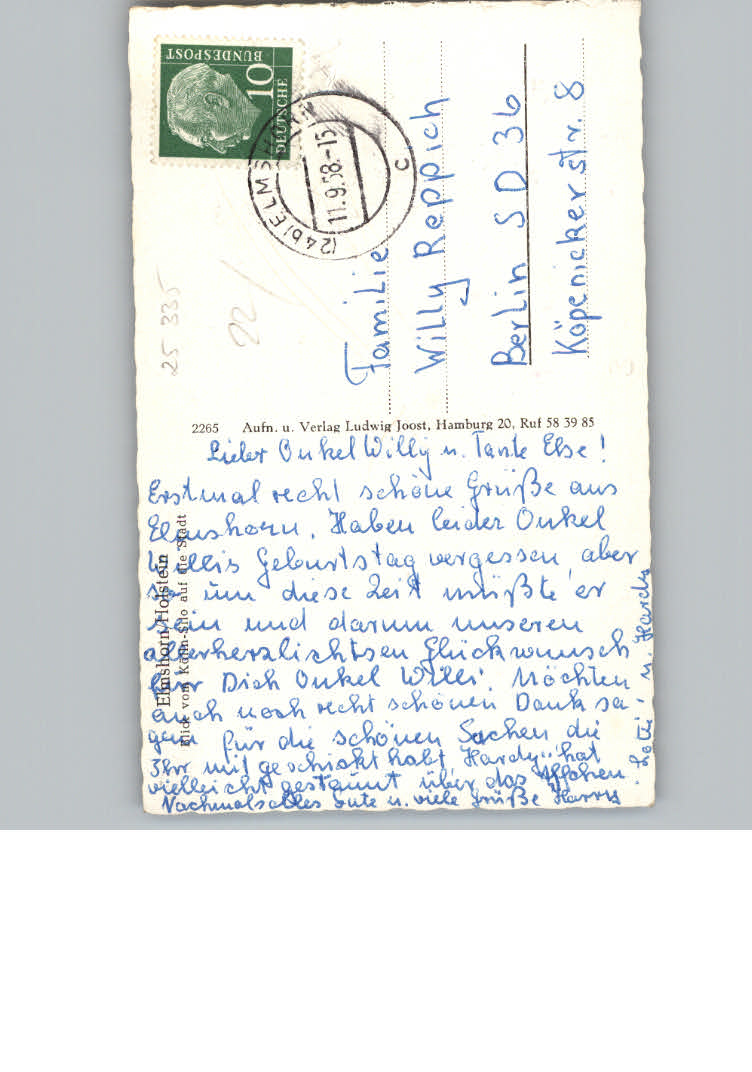 DEUTSCHE
BUNDESPOST
10
(24b) ELMSHORN
11.9.58.-15
c
25 335
22
Familie
Willy Reppich
Berlin SO 36
Köpenicker str. 8
2265 Aufn. u. Verlag Ludwig Joost, Hamburg 20, Ruf 58 39 85
Elmshorn/Holstein
Blick vom Köln-Silo auf die Stadt
Lieber Onkel Willy u. Tante Else!
Erstmal recht schöne Grüße aus
Elmshorn. Haben leider Onkel
Willis Geburtstag vergessen, aber
so um diese Zeit müßte er
sein und darum unseren
allerherzlichtsen Glückwunsch
für Dich Onkel Willi. Möchten
auch noch recht schönen Dank sa
gen für die schönen Sachen die
Ihr mitgeschickt habt, Hardy hat
vielleicht gestaunt über das Äffchen.
Nachmals alles Gute u. viele Grüße Harry
u. Hardy